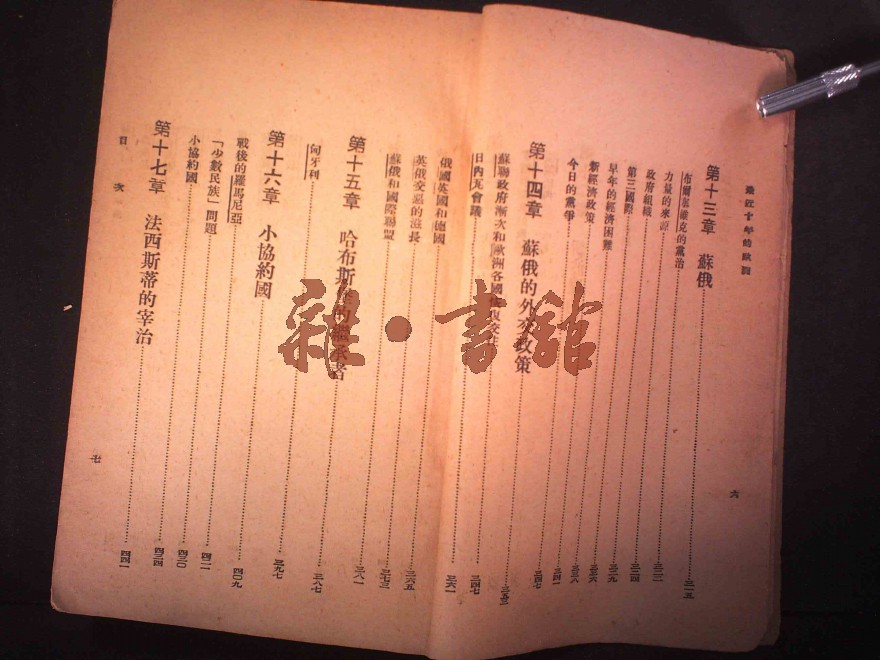 最近十年的歐洲 六
第十三章 蘇俄……三一五
布爾塞維克的黨治……三二二
力量的來源……三二四
政府組織……三二九
第三國際……三三六
早年的經濟困難……三三八
新經濟政策……三四一
今日的黨爭……三四七
第十四章 蘇俄的外交政策
蘇聯政府漸次和歐洲各國恢復交往
日內瓦會議……三六一
俄國英國和德國……三六五
英俄交惡的滋長……三七三
蘇俄和國際聯盟……三八一
第十五章 哈布斯堡的繼承者……三八七
匈牙利……三九七
第十六章 小協約國……四〇九
戰後的羅馬尼亞……四二一
「少數民族」問題……四三〇
小協約國……四三四
第十七章 法西斯蒂的宰治……四四一
目次 七
雜·書館